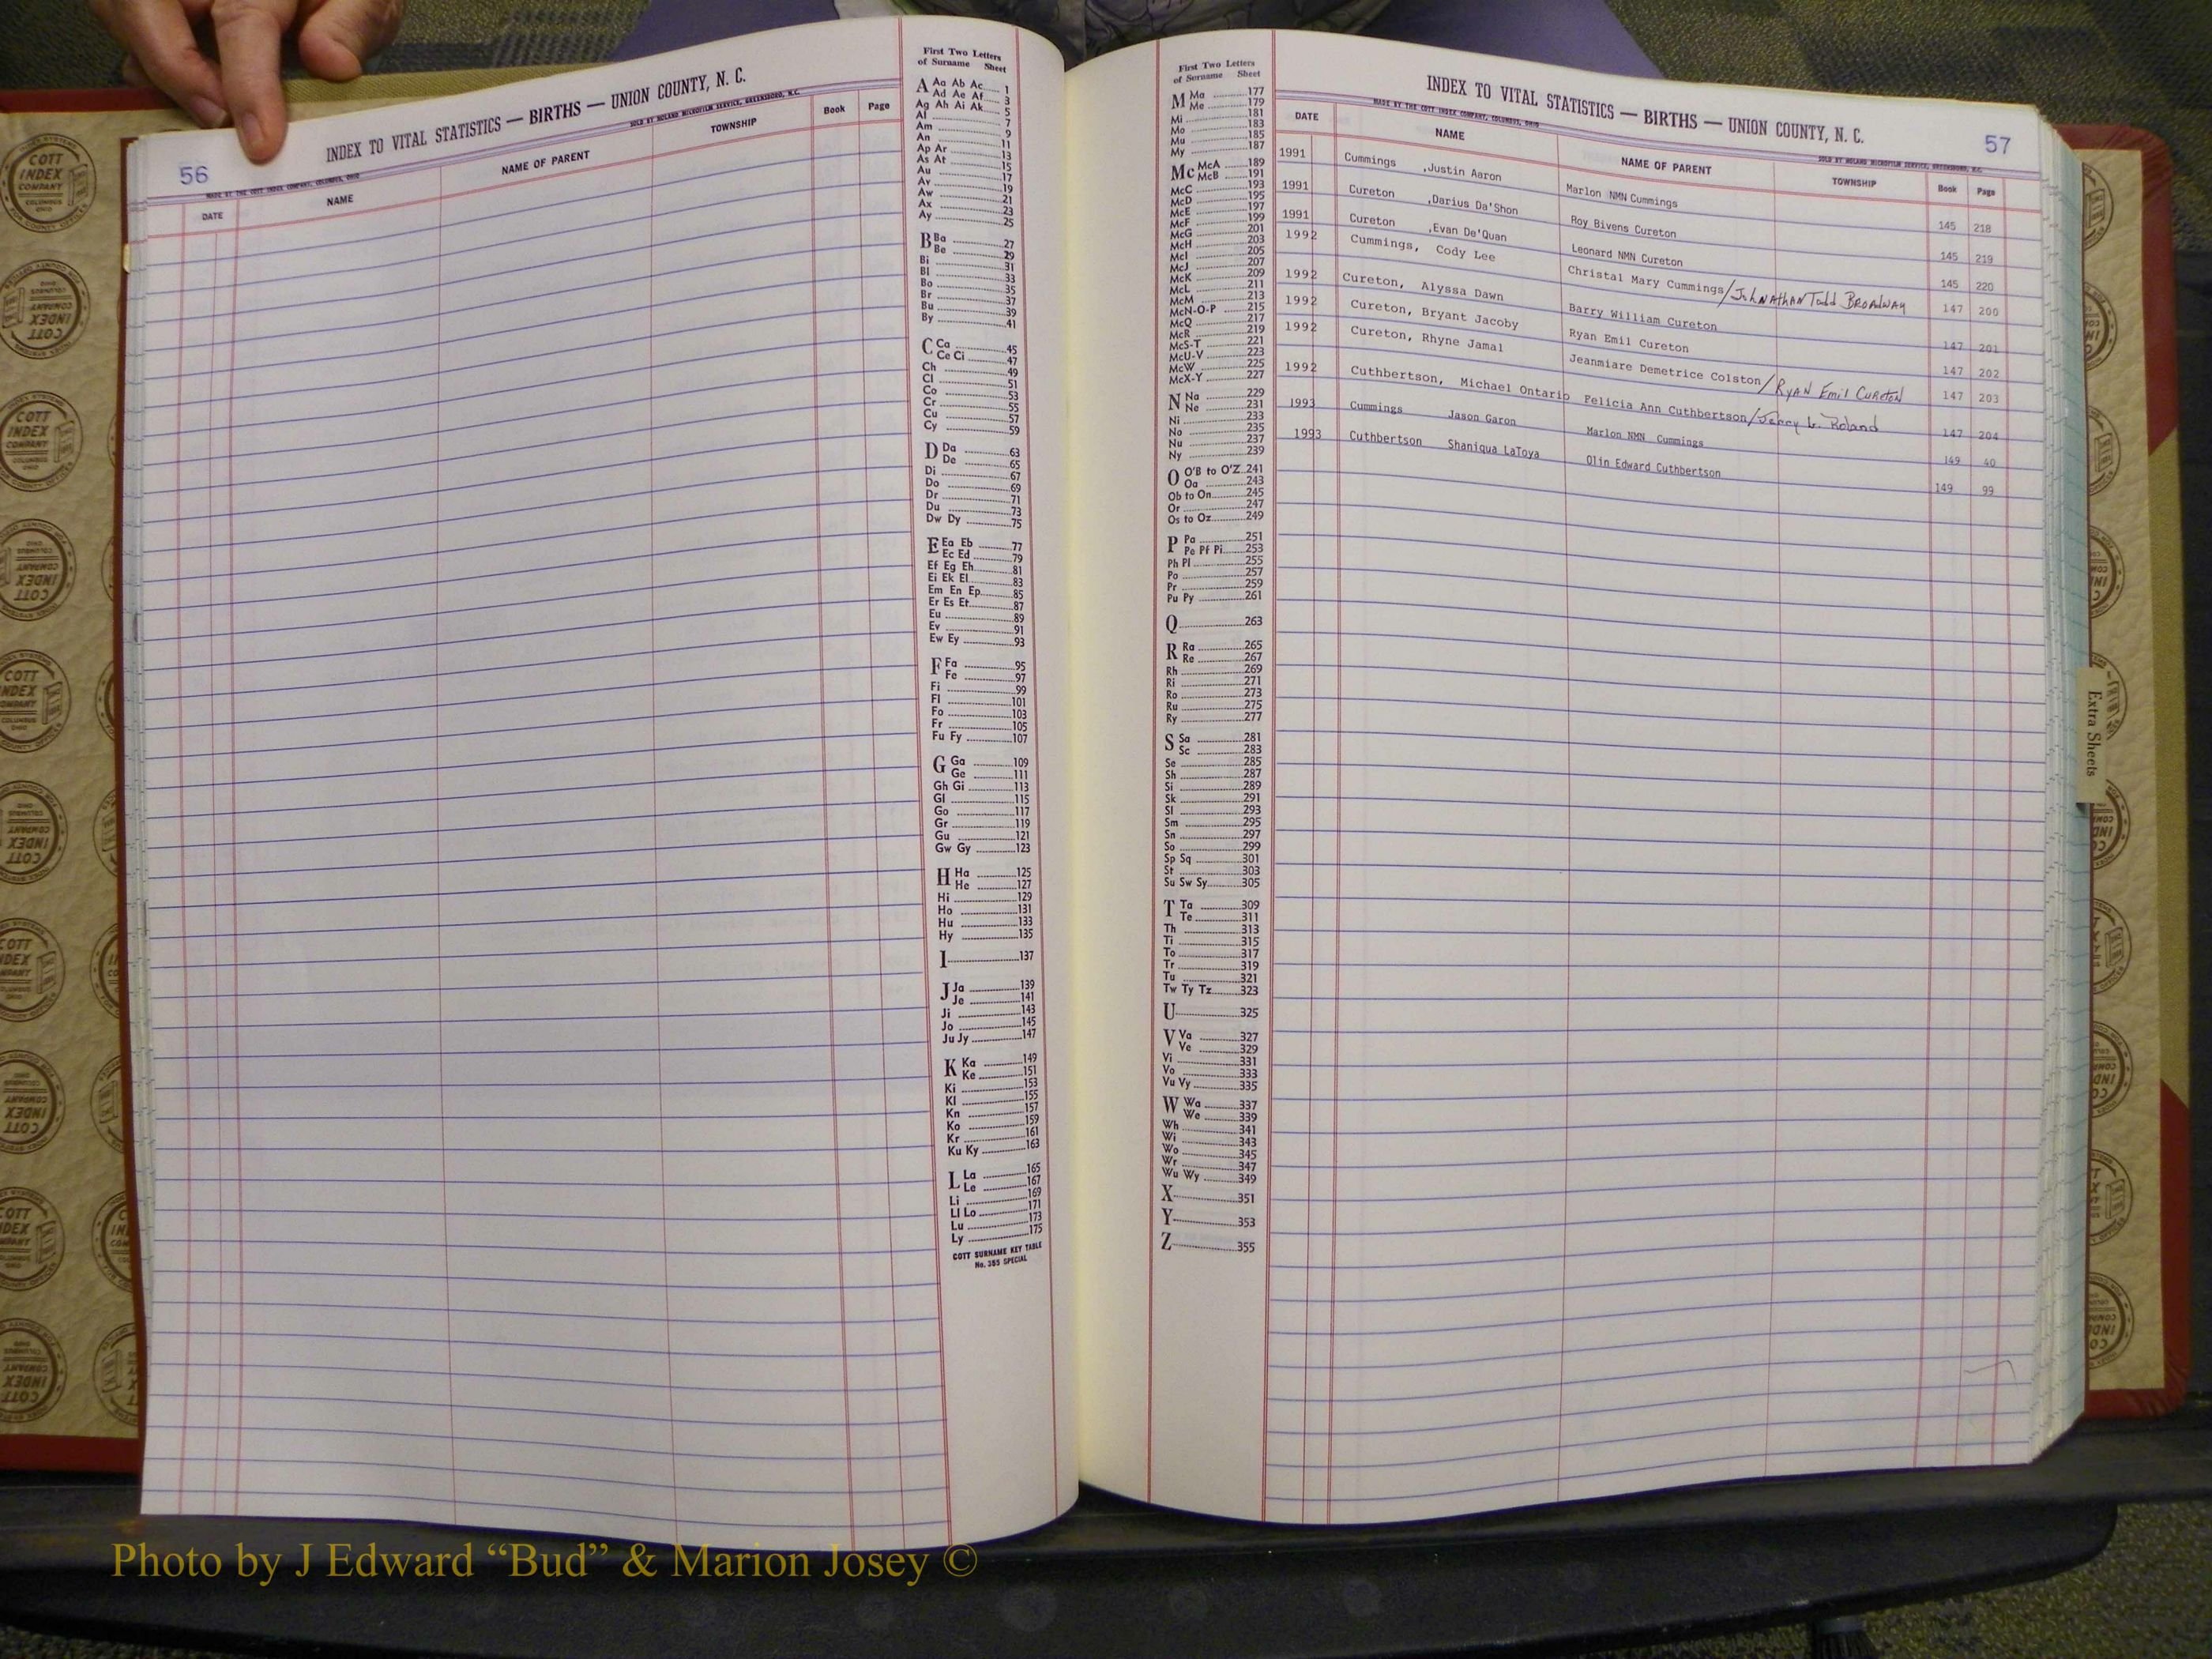 56
INDEX TO VITAL STATISTICS — BIRTHS — UNION COUNTY, N. C.
MADE BY THE COTT INDEX COMPANY, COLUMBUS, OHIO
SOLD BY NOLAND MICROFILM SERVICE, GREENSBORO, N.C.
DATE NAME NAME OF PARENT TOWNSHIP Book Page
First Two Letters
of Surname Sheet
A Aa Ab Ac 1
Ad Ae Af 3
Ag Ah Ai Ak 5
Al 7
Am 9
An 11
Ap Ar 13
As At 15
Au 17
Av 19
Aw 21
Ax 23
Ay 25
B Ba 27
Be 29
Bi 31
Bl 33
Bo 35
Br 37
Bu 39
By 41
C Ca 45
Ce Ci 47
Ch 49
Cl 51
Co 53
Cr 55
Cu 57
Cy 59
D Da 63
De 65
Di 67
Do 69
Dr 71
Du 73
Dw Dy 75
E Ea Eb 77
Ec Ed 79
Ef Eg Eh 81
Ei Ek El 83
Em En Ep 85
Er Es Et 87
Eu 89
Ev 91
Ew Ey 93
F Fa 95
Fe 97
Fi 99
Fl 101
Fo 103
Fr 105
Fu Fy 107
G Ga 109
Ge 111
Gh Gi 113
Gl 115
Go 117
Gr 119
Gu 121
Gw Gy 123
H Ha 125
He 127
Hi 129
Ho 131
Hu 133
Hy 135
I 137
J Ja 139
Je 141
Ji 143
Jo 145
Ju Jy 147
K Ka 149
Ke 151
Ki 153
Kl 155
Kn 157
Ko 159
Kr 161
Ku Ky 163
L La 165
Le 167
Li 169
Ll Lo 171
Lu 173
Ly 175
COTT SURNAME KEY TABLE
No. 355 SPECIAL
First Two Letters
of Surname Sheet
M Ma 177
Me 179
Mi 181
Mo 183
Mu 185
My 187
Mc McA 189
McB 191
McC 193
McD 195
McE 197
McF 199
McG 201
McH 203
McI 205
McJ 207
McK 209
McL 211
McM 213
McN-O-P 215
McQ 217
McR 219
McS-T 221
McU-V 223
McW 225
McX-Y 227
N Na 229
Ne 231
Ni 233
No 235
Nu 237
Ny 239
O O'B to O'Z 241
Oa 243
Ob to On 245
Or 247
Os to Oz 249
P Pa 251
Pe Pf Pi 253
Ph Pl 255
Po 257
Pr 259
Pu Py 261
Q 263
R Ra 265
Re 267
Rh 269
Ri 271
Ro 273
Ru 275
Ry 277
S Sa 281
Sc 283
Se 285
Sh 287
Si 289
Sk 291
Sl 293
Sm 295
Sn 297
So 299
Sp Sq 301
St 303
Su Sw Sy 305
T Ta 309
Te 311
Th 313
Ti 315
To 317
Tr 319
Tu 321
Tw Ty Tz 323
U 325
V Va 327
Ve 329
Vi 331
Vo 333
Vu Vy 335
W Wa 337
We 339
Wh 341
Wi 343
Wo 345
Wr 347
Wu Wy 349
X 351
Y 353
Z 355
57
INDEX TO VITAL STATISTICS — BIRTHS — UNION COUNTY, N. C.
MADE BY THE COTT INDEX COMPANY, COLUMBUS, OHIO
SOLD BY NOLAND MICROFILM SERVICE, GREENSBORO, N.C.
DATE NAME NAME OF PARENT TOWNSHIP Book Page
1991 Cummings ,Justin Aaron Marlon NMN Cummings 145 218
1991 Cureton ,Darius Da'Shon Roy Bivens Cureton 145 219
1991 Cureton ,Evan De'Quan Leonard NMN Cureton 145 220
1992 Cummings, Cody Lee Christal Mary Cummings/Johnathan Todd Broadway 147 200
1992 Cureton, Alyssa Dawn Barry William Cureton 147 201
1992 Cureton, Bryant Jacoby Ryan Emil Cureton 147 202
1992 Cureton, Rhyne Jamal Jeanmiare Demetrice Colston/Ryan Emil Cureton 147 203
1992 Cuthbertson, Michael Ontario Felicia Ann Cuthbertson/Jerry L. Roland 147 204
1993 Cummings Jason Garon Marlon NMN Cummings 149 40
1993 Cuthbertson Shaniqua LaToya Olin Edward Cuthbertson 149 99
Extra Sheets
COTT
INDEX
COMPANY
COLUMBUS
OHIO
Photo by J Edward “Bud” & Marion Josey ©